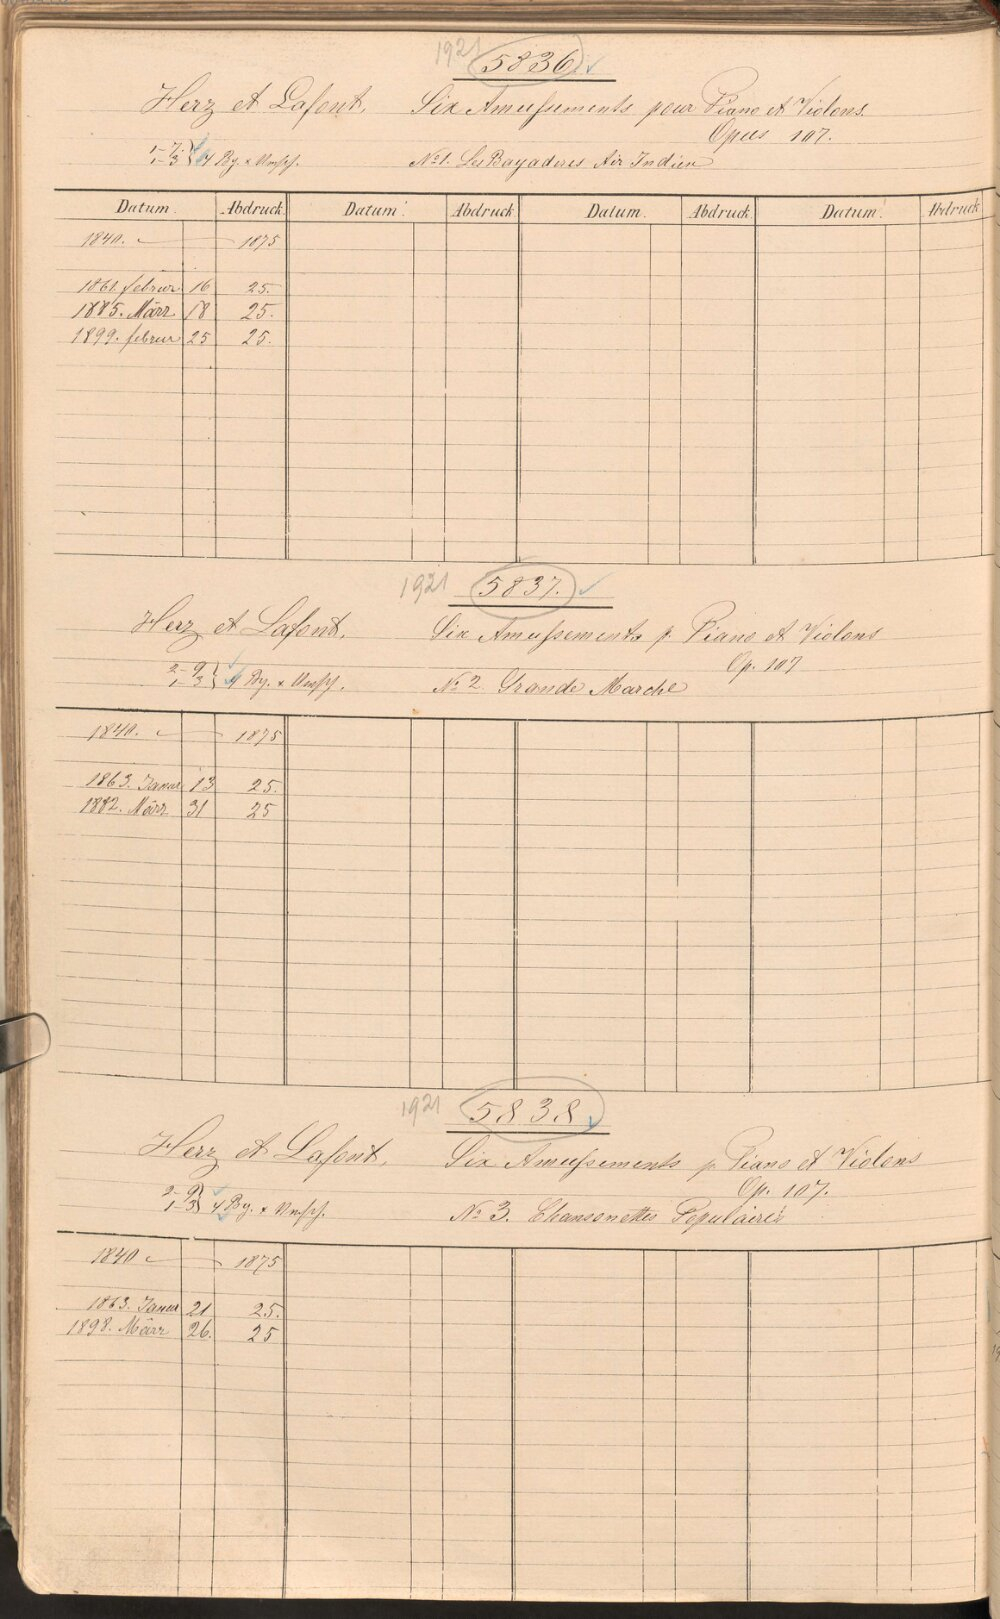 1921 5836.
Herz et Lafont, Six Amusements pour Piano et Violons.
Opus 107.
1-7.
1-3 4 Bg. + Umsch. No 1. Les Bayaderes Air Indien
Datum. Abdruck Datum. Abdruck Datum. Abdruck Datum. Abdruck
1840. 1875
1861. februar 16 25.
1885. März 18 25.
1899. februar 25 25.
1921 5837.
Herz et Lafont, Six Amusements p. Piano et Violons
Op. 107
2-9
1-3 4 Bg. + Umsch. No 2. Grande Marche
1840. 1875
1863. Januar 13 25.
1882. März 31 25
1921 5838
Herz et Lafont, Six Amusements p. Piano et Violons
Op. 107.
2-9
1-3 4 Bg. + Umsch. No 3. Chansonettes Populaires
1840 1875
1863. Januar 21 25.
1898. März 26. 25